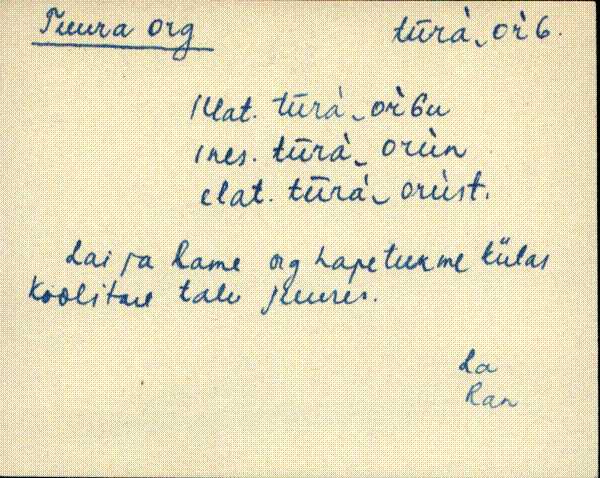 Tuura org tūrà‿or̀G.
Illat. tūrà‿or̀Gu
ines. tūrà‿orùn
elat. tūrà‿orùst.
Lai ja lame org hapetuxme külas
Koolitare talu juures.
La
Ran